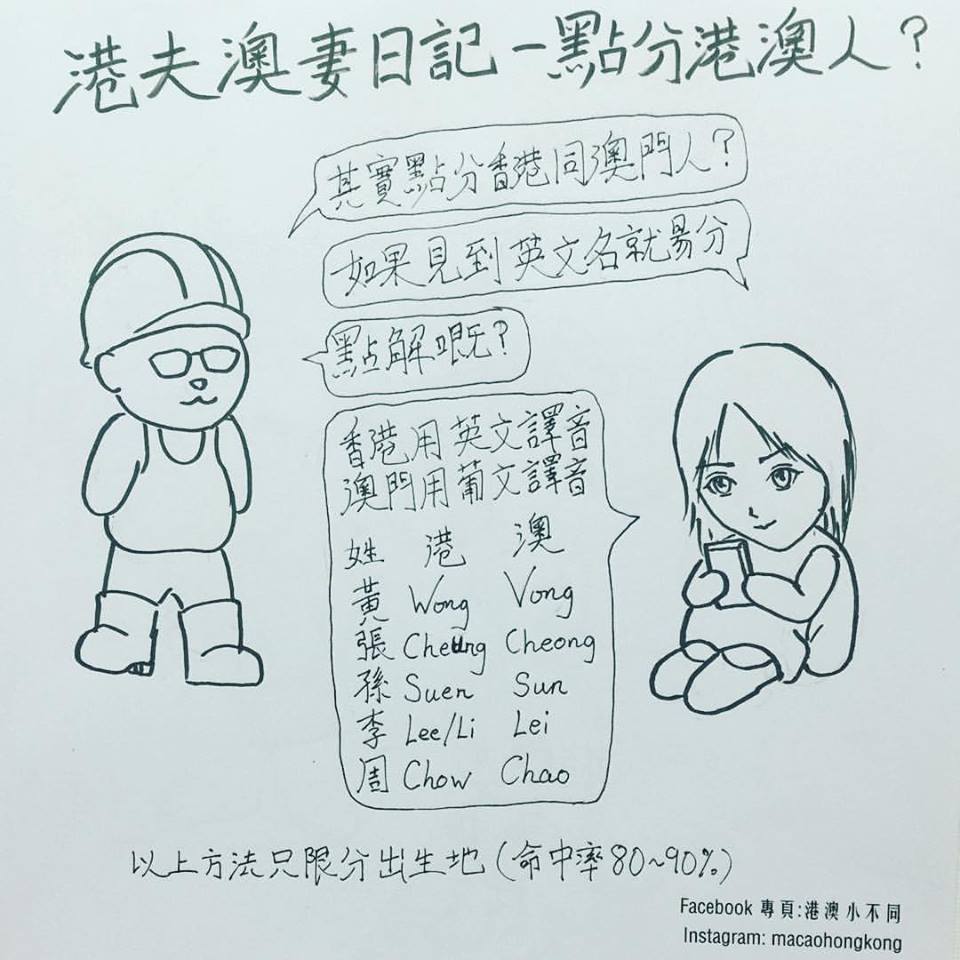 港夫澳妻日記－點分港澳人？
其實點分香港同澳門人？
如果見到英文名就易分
點解嘅？
香港用英文譯音
澳門用葡文譯音
姓 港 澳
黃 Wong Vong
張 Cheung Cheong
孫 Suen Sun
李 Lee/Li Lei
周 Chow Chao
以上方法只限分出生地(命中率80~90%)
Facebook 專頁:港澳小不同
Instagram: macaohongkong